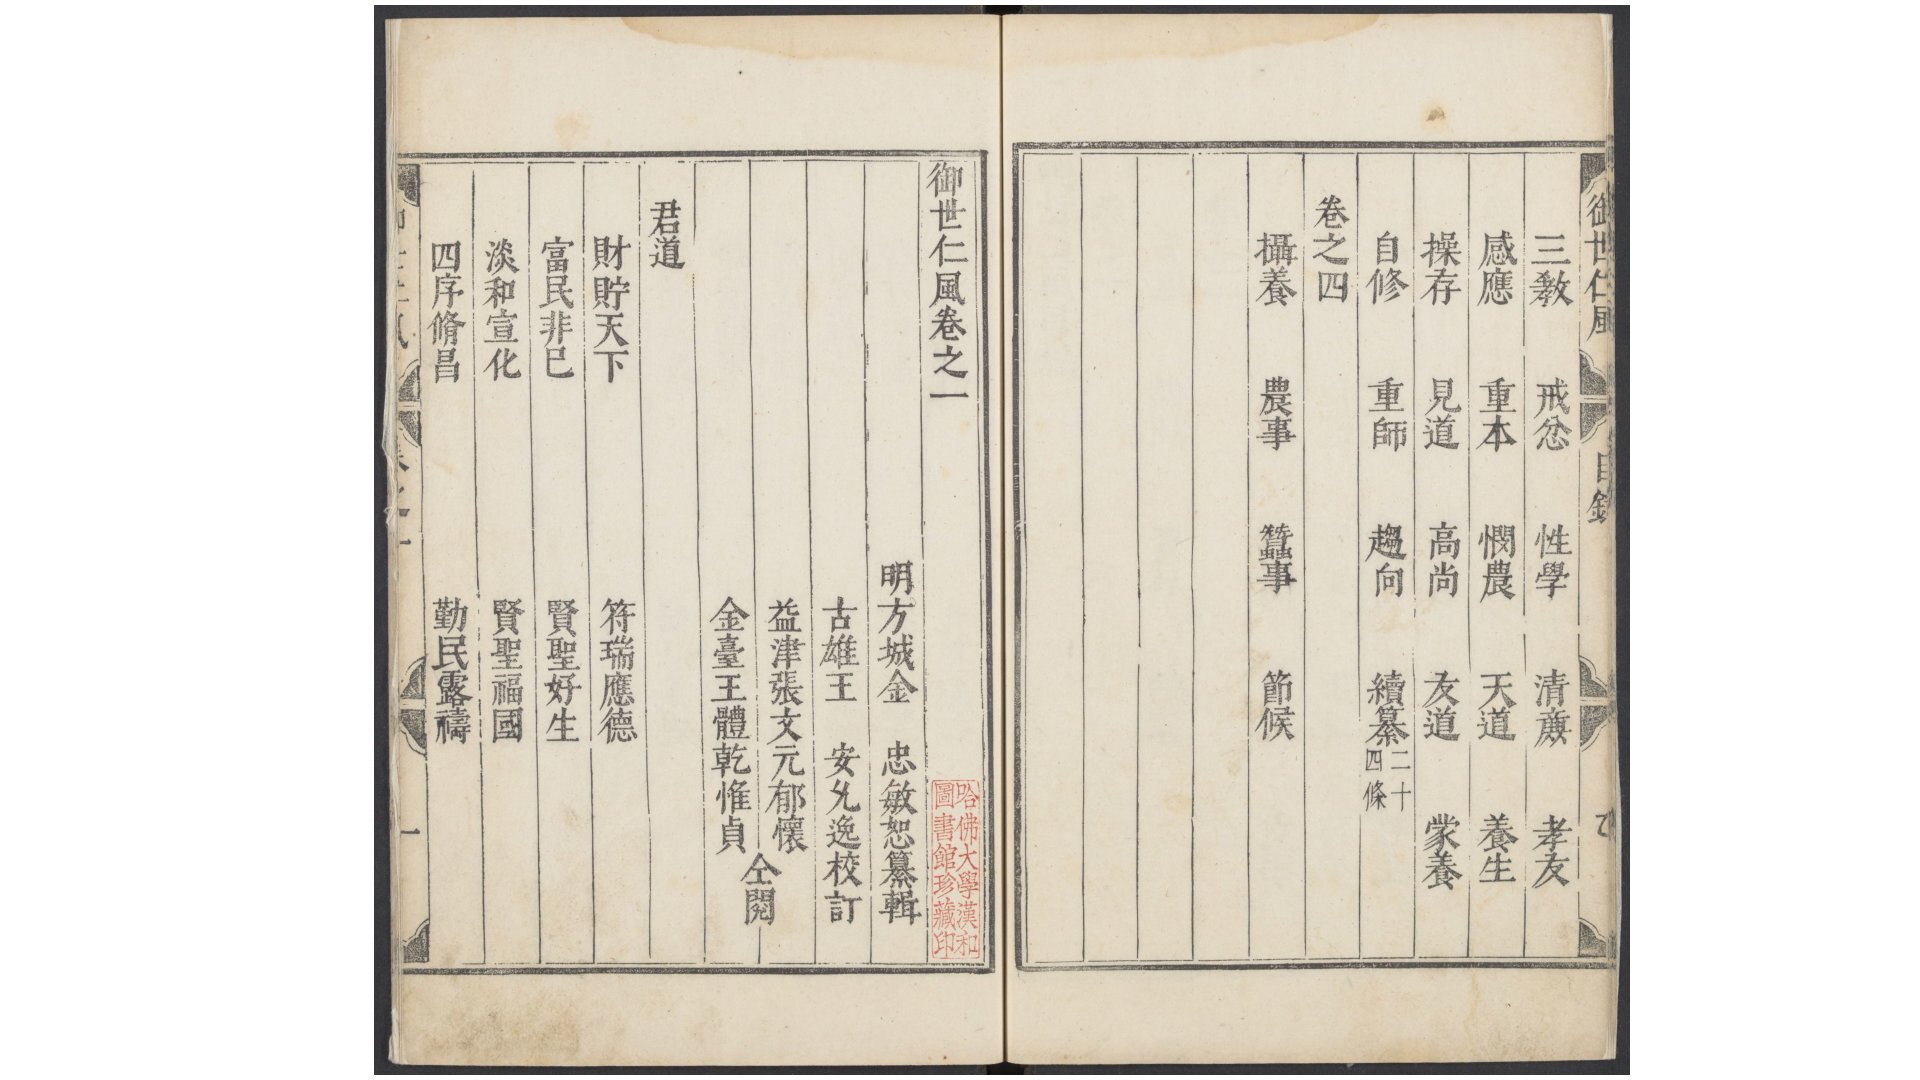 御世仁風
目錄
三敎　戒忿　性學　清廉　孝友
感應　重本　憫農　天道　養生
操存　見道　高尚　友道　蒙養
自修　重師　趨向　續纂二十四條
卷之四
攝養　農事　蠶事　節候
御世仁風卷之一
哈佛大學漢和圖書館珍藏印
明方城金　忠敏恕纂輯
古雄王　安允逸校訂
益津張文元郁懷
金臺王體乾惟貞
仝閱
君道
財貯天下　符瑞應德
富民非己　賢聖好生
淡和宣化　賢聖福國
四序脩昌　勤民露禱
一